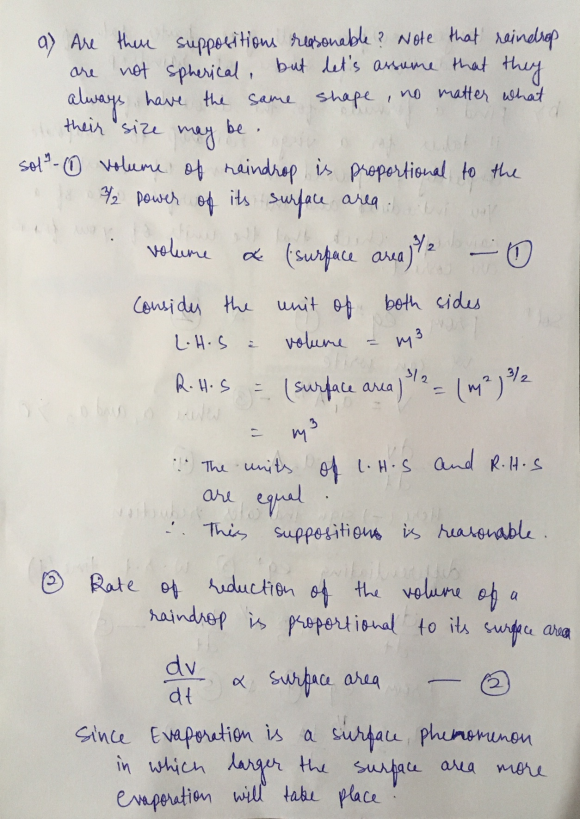 a) Are these suppositions reasonable? Note that raindrop
are not spherical, but let's assume that they
always have the same shape, no matter what
their size may be.
solⁿ- ① volume of raindrop is proportional to the
3/2 power of its surface area.
∴ volume ∝ (surface area)^3/2 — ①
Consider the unit of both sides
L.H.S = volume = m³
R.H.S = (surface area)^3/2 = (m²)^3/2
= m³
∵ The units of L.H.S and R.H.S
are equal.
∴ This suppositions is reasonable.
② Rate of reduction of the volume of a
raindrop is proportional to its surface area
dv/dt ∝ surface area — ②
Since Evaporation is a surface phenomenon
in which larger the surface area more
evaporation will take place.